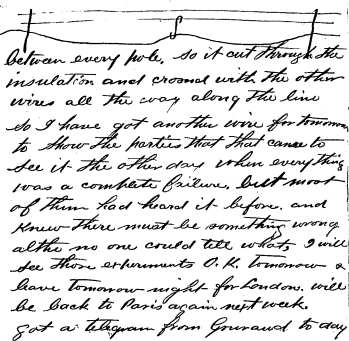 between every pole. so it cut through the
insulation and crossed with the other
wires all the way along the line
so I have got another wire for tomorrow
to show the parties that that came to
see it the other day when everything
was a complete failure. but most
of them had heard it before. and
knew there must be something wrong
altho no one could tell what. I will
see those experiments O.K. tomorrow &
leave tomorrow night for London. will
be back to Paris again next week.
got a telegram from Gouraud to day